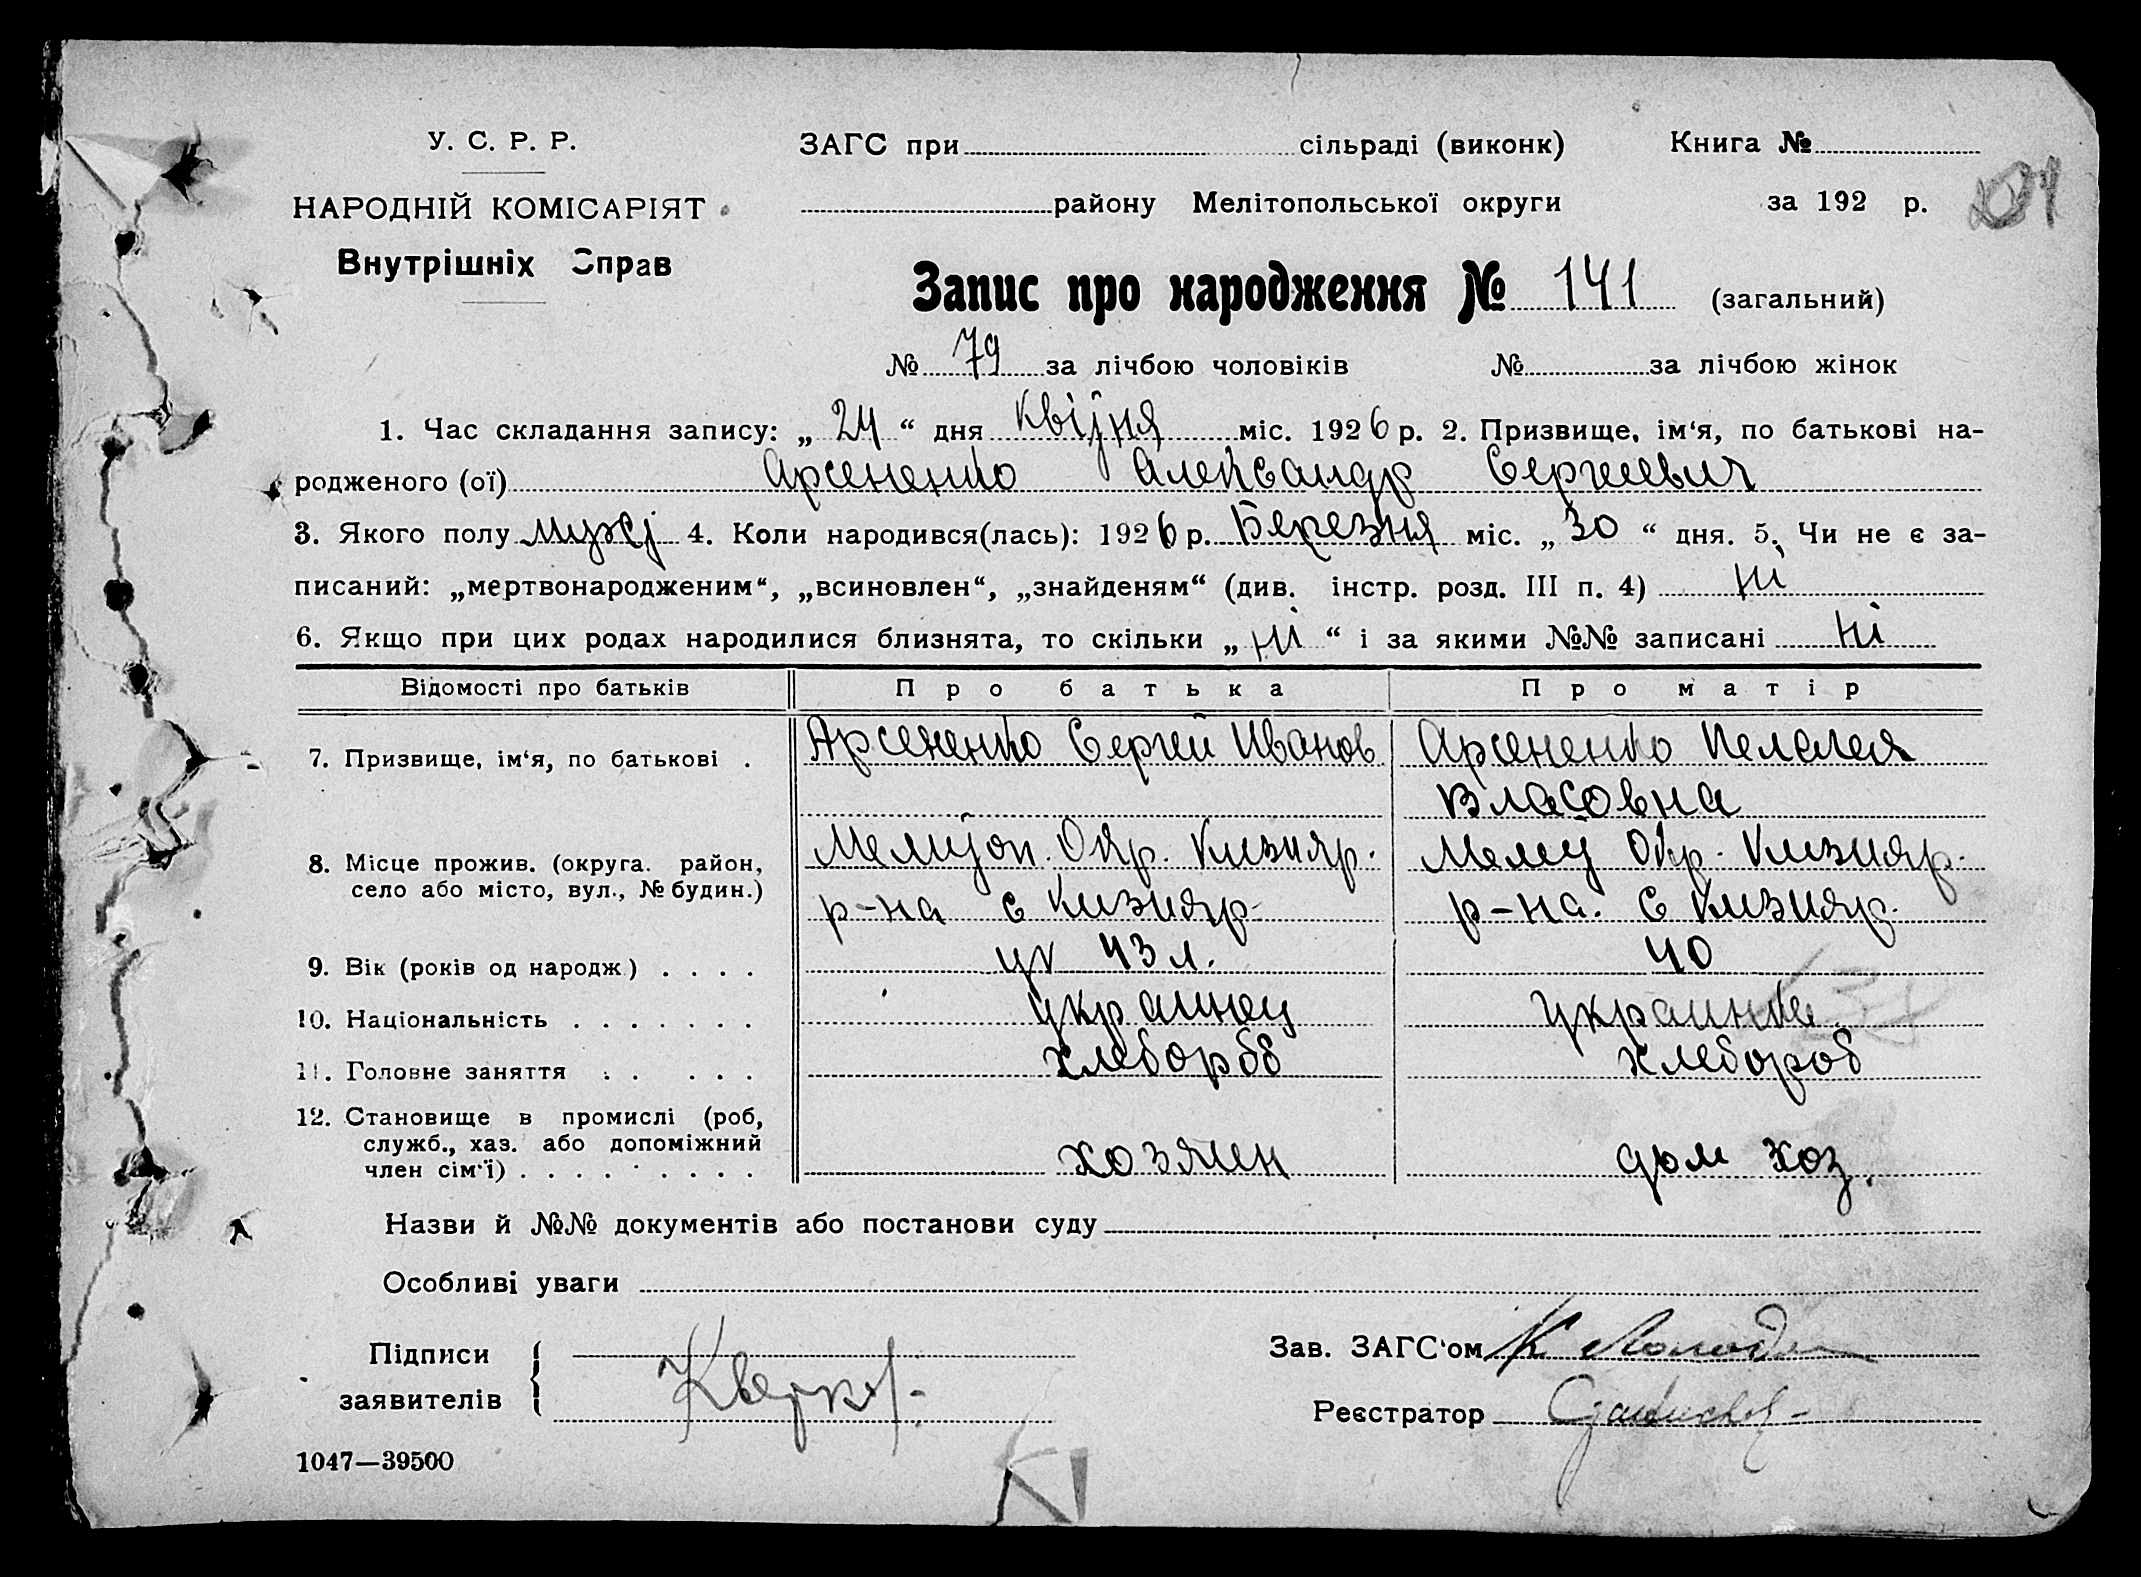 У. С. Р. Р.
НАРОДНІЙ КОМІСАРІЯТ
Внутрішніх Справ
ЗАГС при сільраді (виконк)
Книга №
району Мелітопольської округи
за 192 р.
Запис про народження № 141 (загальний)
№ 79 за лічбою чоловіків № за лічбою жінок
1. Час складання запису: „ 24 “ дня квітня міс. 1926 р. 2. Призвище, ім‘я, по батькові на-
родженого (ої) Арсененко Александр Сергеевич
3. Якого полу 4. Коли народився(лась): 1926 р. Березня міс. „ 30 “ дня. 5. Чи не є за-
писаний: „мертвонародженим“, „всиновлен“, „знайденям“ (див. інстр. розд. III п. 4) ні
6. Якщо при цих родах народилися близнята, то скільки „ ні “ і за якими №№ записані ні
Відомості про батьків Про батька Про матір
7. Призвище, ім‘я, по батькові . Арсененко Сергей Иванов Арсененко Пелагея
Власовна
8. Місце прожив. (округа. район, Мелитоп. Окр. Кизияр. Мелит Окр. Кизияр.
село або місто, вул., № будин.) р-на с Кизияр р-на. с Кизияр.
9. Вік (років од народж.) . . . . 43 л. 40
10. Національність . . . . . . . украинец украинка
11. Головне заняття . . . . . хлебороб хлебороб
12. Становище в промислі (роб,
служб., хаз. або допоміжний
член сім‘ї) . . . . . . . . . хозяин дом хоз.
Назви й №№ документів або постанови суду
Особливі уваги
Підписи
заявителів
Зав. ЗАГС‘ом
Реєстратор
1047—39500